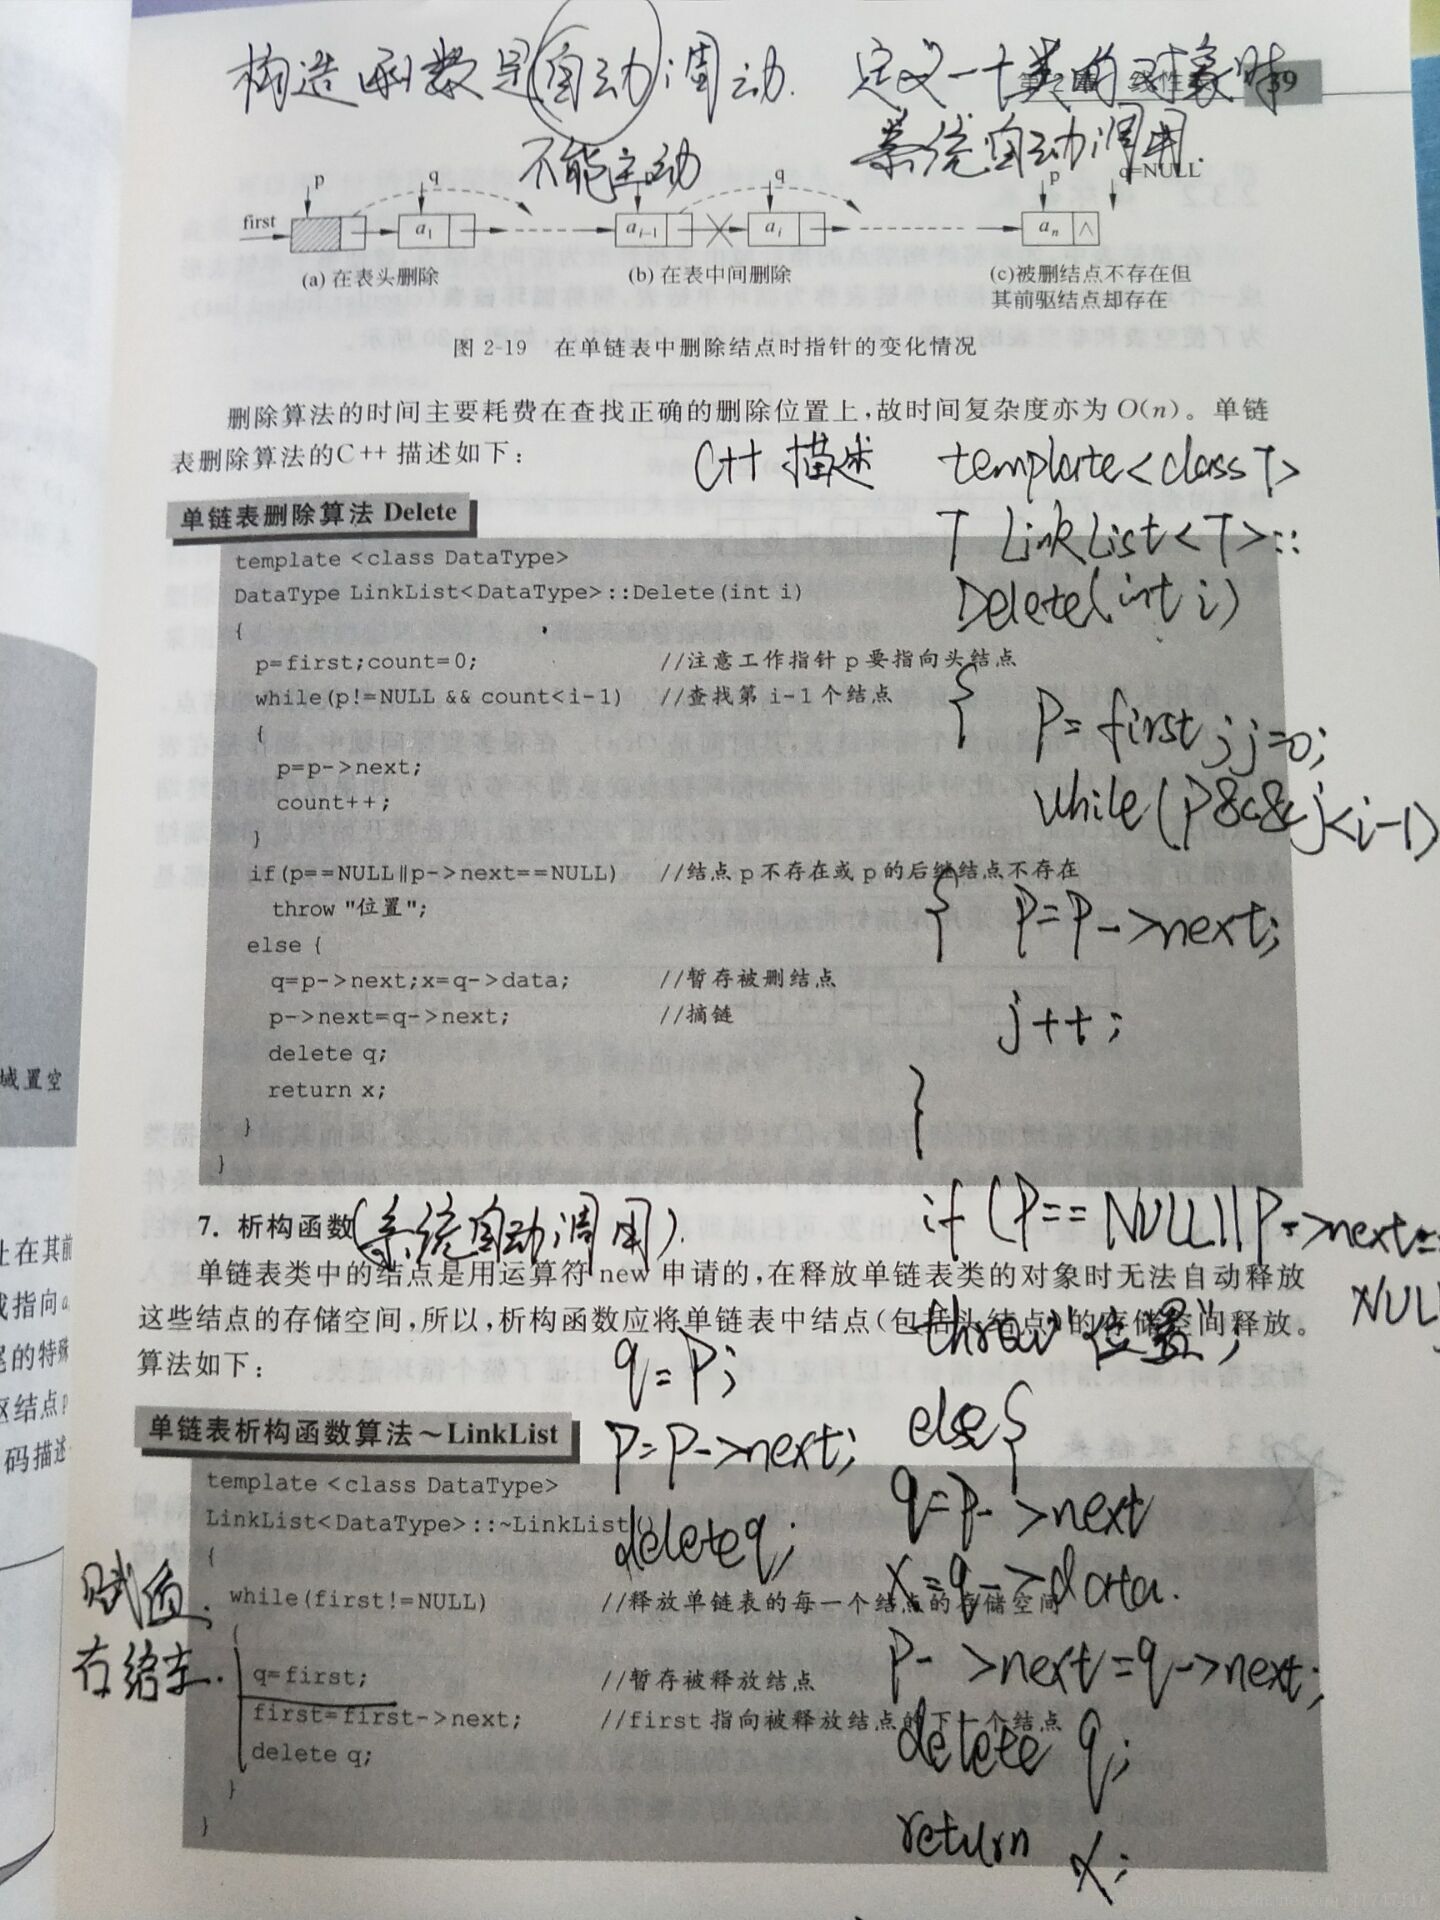 构造函数是自动调动. 定义一个类的对象时
39
不能主动 系统自动调用.
p q q p q=NULL
first a1 ai-1 ai an ∧
(a) 在表头删除 (b) 在表中间删除 (c)被删结点不存在但
其前驱结点却存在
图 2-19 在单链表中删除结点时指针的变化情况
删除算法的时间主要耗费在查找正确的删除位置上,故时间复杂度亦为 O(n)。单链
表删除算法的C++ 描述如下:
C++ 描述
template<class T>
T LinkList<T>::
Delete(int i)
{ P=first;j=0;
while(P&&j<i-1)
{ P=P->next;
j++;
}
if(P==NULL||P->next==
NULL
throw"位置";
else{
q=P->next
x=q->data.
P->next=q->next;
delete q;
return x;
单链表删除算法 Delete
template <class DataType>
DataType LinkList<DataType>::Delete(int i)
{
p=first;count=0; //注意工作指针 p 要指向头结点
while(p!=NULL && count<i-1) //查找第 i-1 个结点
{
p=p->next;
count++;
}
if(p==NULL||p->next==NULL) //结点 p 不存在或 p 的后继结点不存在
throw "位置";
else {
q=p->next;x=q->data; //暂存被删结点
p->next=q->next; //摘链
delete q;
return x;
}
}
7. 析构函数(系统自动调用).
单链表类中的结点是用运算符 new 申请的,在释放单链表类的对象时无法自动释放
这些结点的存储空间,所以,析构函数应将单链表中结点(包括头结点)的存储空间释放。
算法如下:
q=P;
P=P->next;
delete q;
单链表析构函数算法～LinkList
template <class DataType>
LinkList<DataType>::~LinkList()
{
while(first!=NULL) //释放单链表的每一个结点的存储空间
{
q=first; //暂存被释放结点
first=first->next; //first 指向被释放结点的下一个结点
delete q;
}
}
赋值.
右给左.
域置空
上在其前
尾的特殊
区结点p
码描述